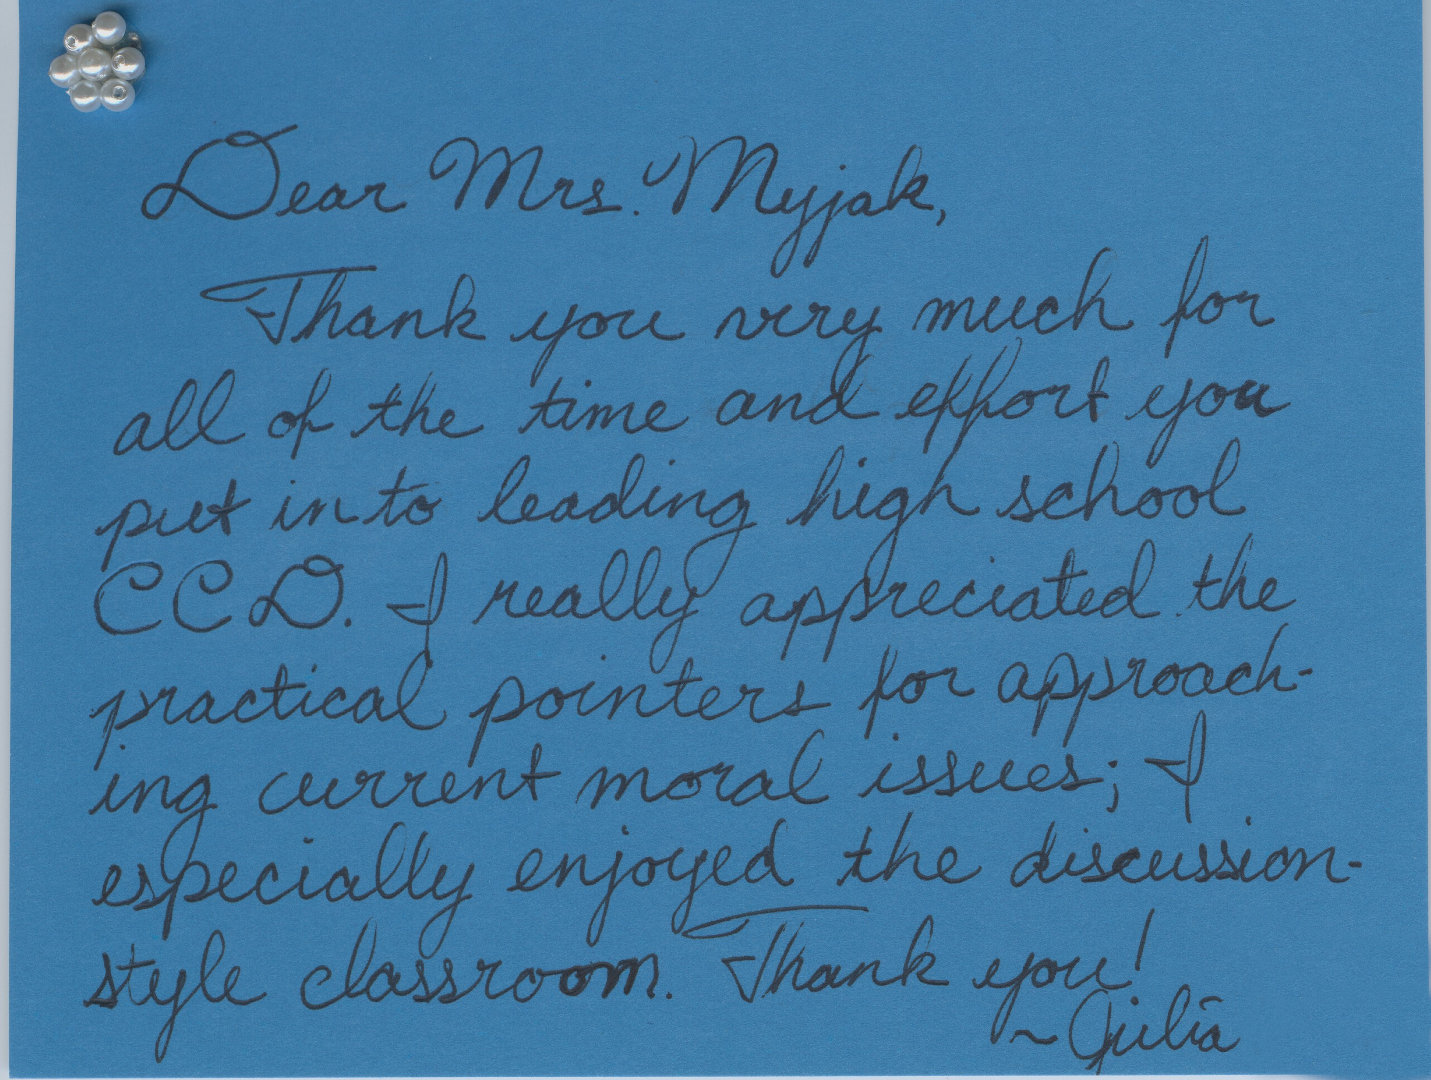 Dear Mrs. Myjak,
Thank you very much for
all of the time and effort you
put into leading high school
CCD. I really appreciated the
practical pointers for approach-
ing current moral issues; I
especially enjoyed the discussion-
style classroom. Thank you!
~Julia